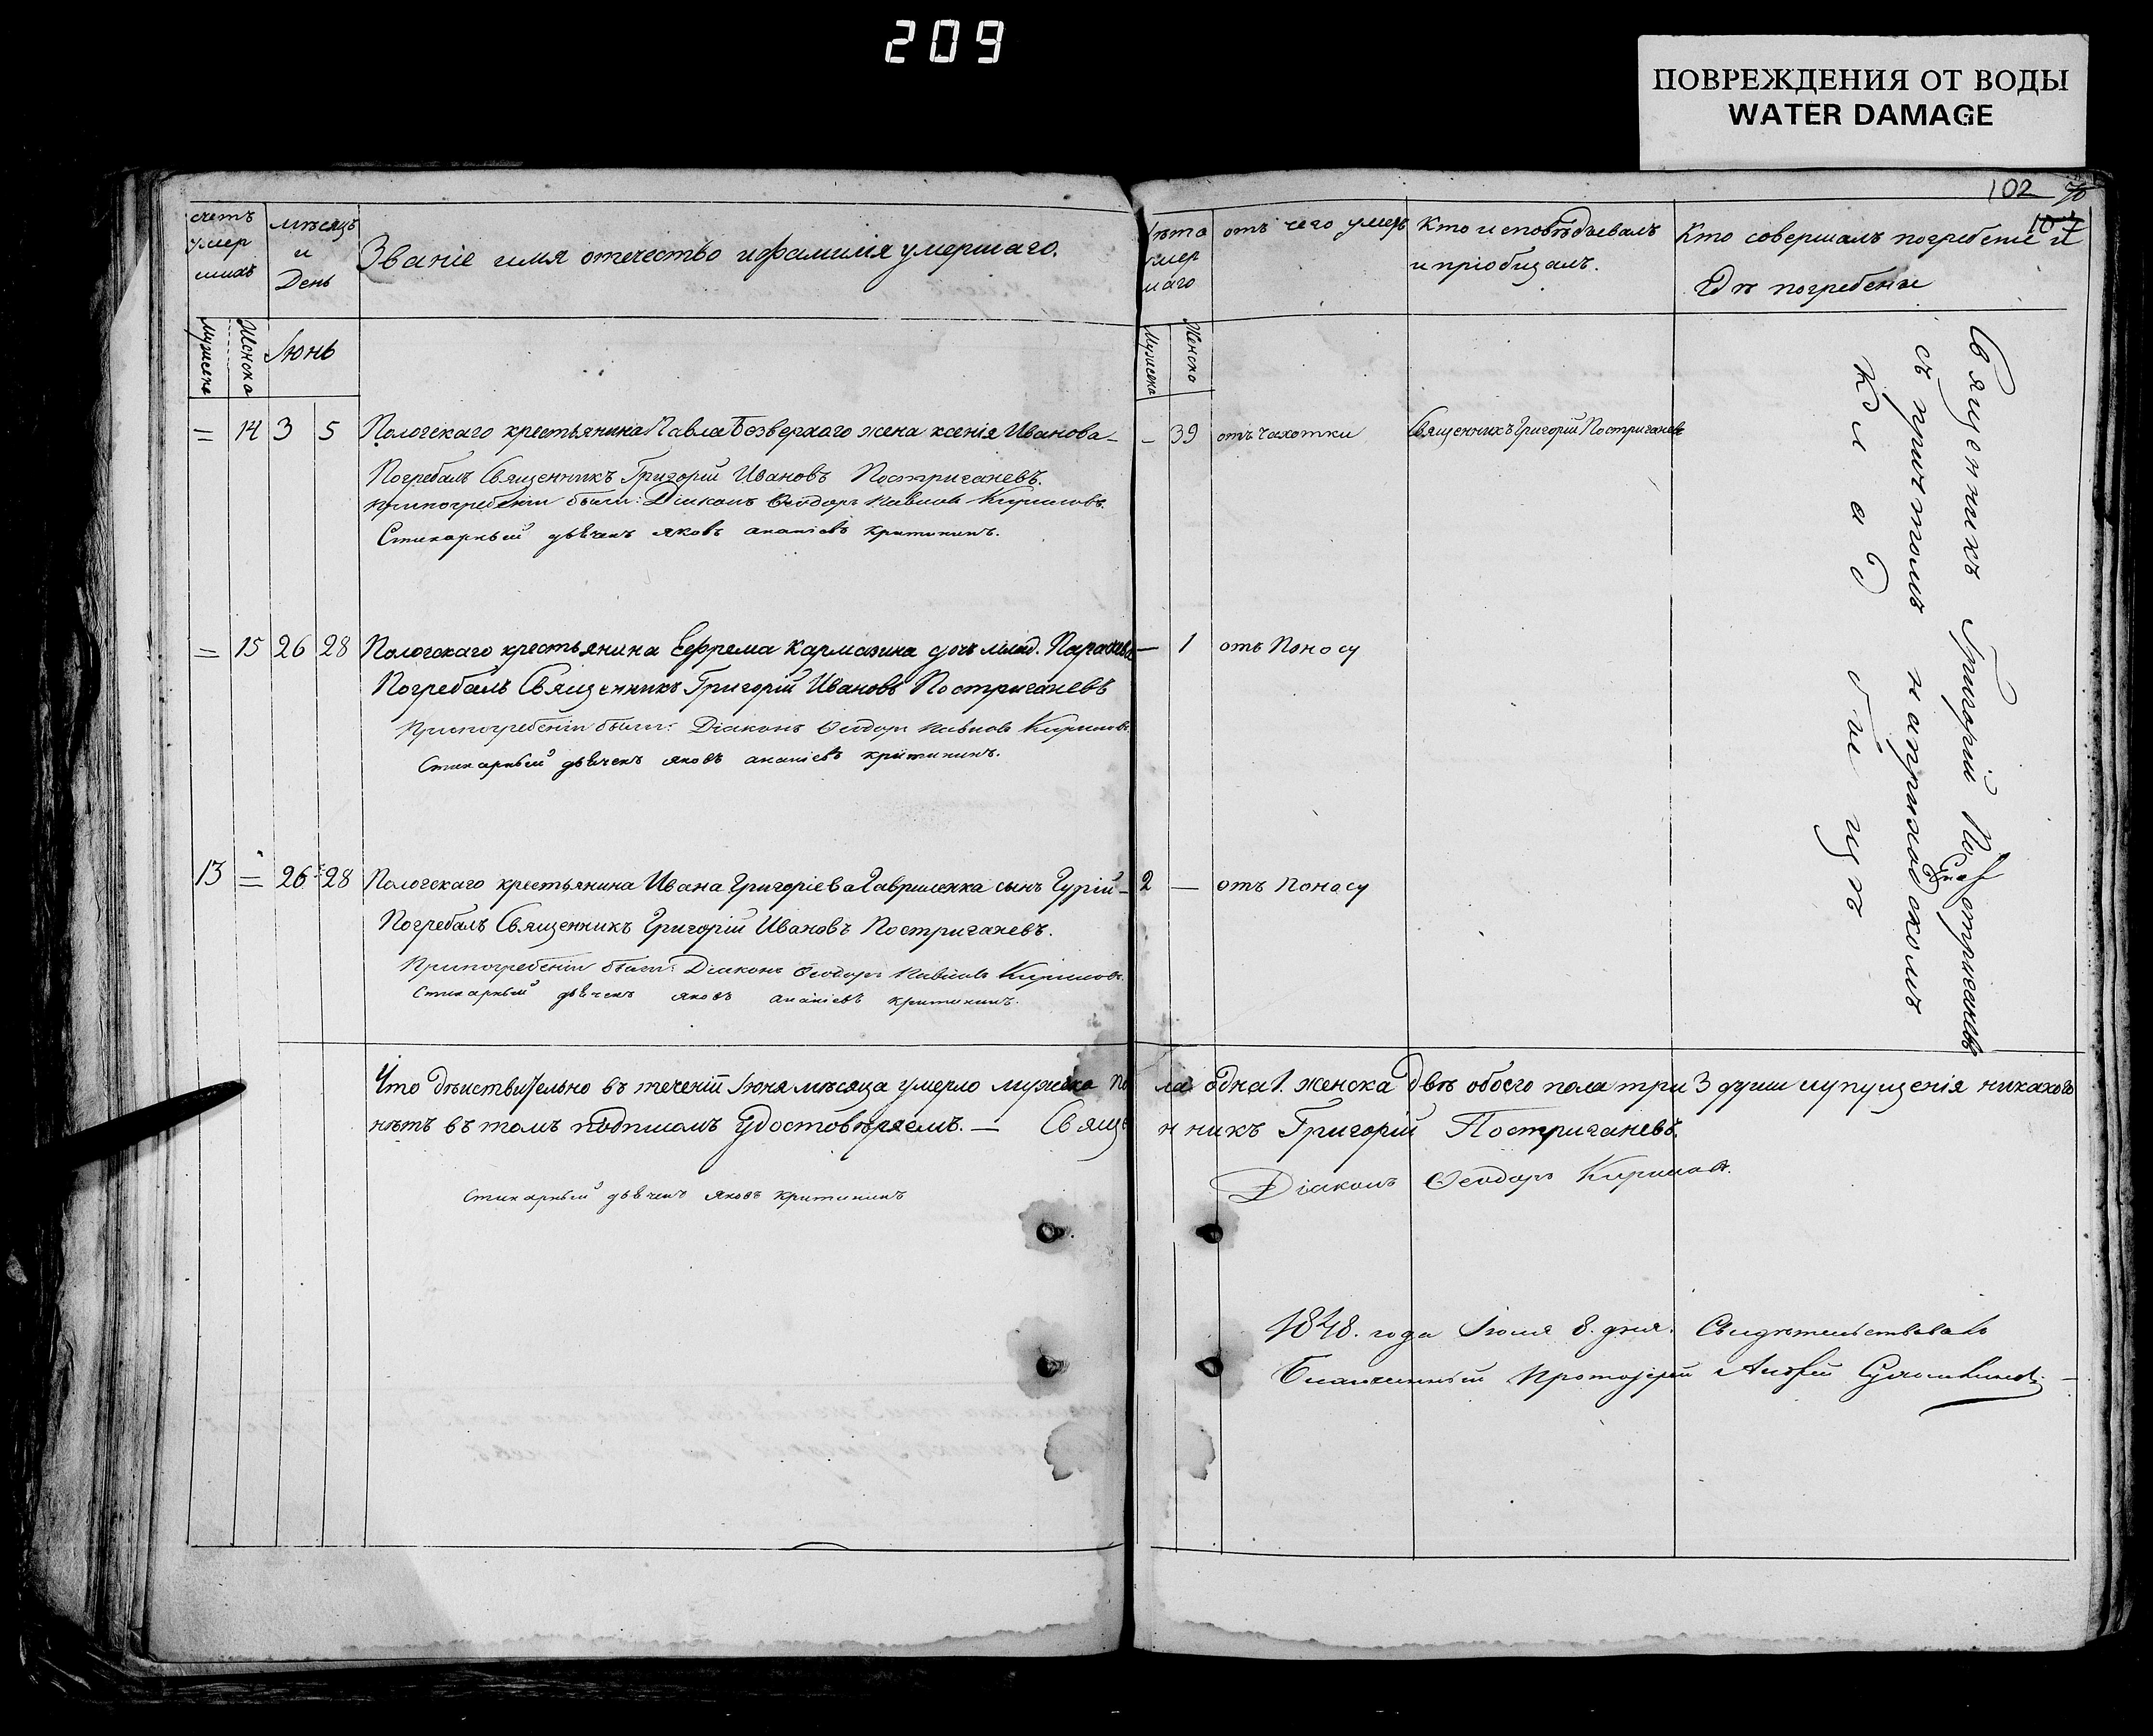 209
ПОВРЕЖДЕНИЯ ОТ ВОДЫ
WATER DAMAGE
102
счетъ умер шихъ
мѣсяцъ и День
Званіе имя отечество и фамилія умершаго.
Лѣта умер шаго
отъ чего умеръ
Кто исповѣдывалъ и пріобщалъ.
Кто совершалъ погребеніе и
Гдѣ погребены
Мужеска Женска Іюнь
Мужеска Женска
= 14 3 5 Пологскаго крестьянина Павла Безверхаго жена ксенія Иванова – – 39 отъ Чахотки Священникъ Григорій Постриганевъ
Погребалъ Священникъ Григорій Ивановъ Постриганевъ.
при погребеніи были: Діаконъ Ѳеодоръ Павловъ Кириловъ.
Стихарный дьячекъ яковъ ананіевъ критининъ.
= 15 26 28 Пологскаго крестьянина Ефрема Кармазина дочь млад. Параскева – 1 отъ Поносу
Погребалъ Священникъ Григорій Ивановъ Постриганевъ
При погребеніи были: Діаконъ Ѳеодоръ Павловъ Кириловъ.
Стихарный дьячекъ яковъ ананіевъ критининъ.
13 = 26 28 Пологскаго крестьянина Ивана Григоріева Гавриленка сынъ Гурій – 2 – отъ Поносу
Погребалъ Священникъ Григорій Ивановъ Постриганевъ.
При погребеніи были: Діаконъ Ѳеодоръ Павловъ Кириловъ.
Стихарный дьячекъ яковъ ананіевъ критининъ.
Священникъ Григорій Постриганевъ
съ причтомъ на приходскомъ
Кладбищѣ
Что дѣиствительно въ теченіи Іюня мѣсяца умерло мужска пола одна 1. женска двѣ обоего пола три 3 души и упущенія никакого
нѣтъ въ томъ подписомъ Удостовѣряемъ. — Священникъ Григорій Постриганевъ.
Діаконъ Ѳеодоръ Кириловъ.
Стихарный дьячекъ яковъ критининъ
1848. года Іюля 8. дня. Свидѣтельствовалъ
Благочинный Протоіерей Андрей